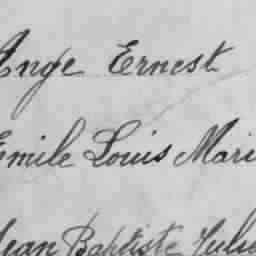 Ange Ernest
Emile Louis Mari
Jean Baptiste Jules